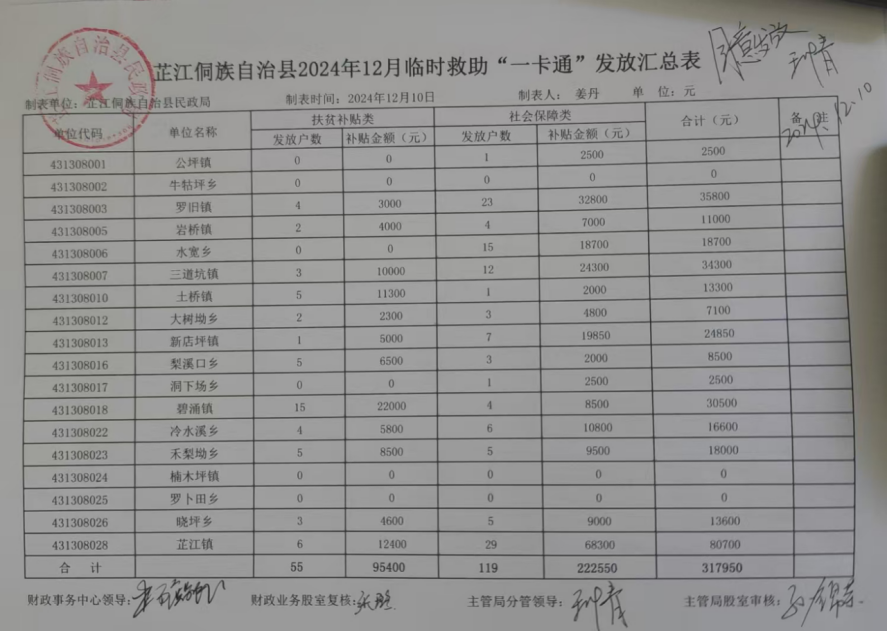 芷江侗族自治县2024年12月临时救助“一卡通”发放汇总表
同意发放
2024.12.10
制表单位：芷江侗族自治县民政局 制表时间：2024年12月10日 制表人： 姜丹 单 位：元
单位代码 单位名称 扶贫补贴类 社会保障类 合计（元） 备 注
发放户数 补贴金额（元） 发放户数 补贴金额（元）
431308001 公坪镇 0 0 1 2500 2500
431308002 牛牯坪乡 0 0 0 0 0
431308003 罗旧镇 4 3000 23 32800 35800
431308005 岩桥镇 2 4000 4 7000 11000
431308006 水宽乡 0 0 15 18700 18700
431308007 三道坑镇 3 10000 12 24300 34300
431308010 土桥镇 5 11300 1 2000 13300
431308012 大树坳乡 2 2300 3 4800 7100
431308013 新店坪镇 1 5000 7 19850 24850
431308016 梨溪口乡 5 6500 3 2000 8500
431308017 洞下场乡 0 0 1 2500 2500
431308018 碧涌镇 15 22000 4 8500 30500
431308022 冷水溪乡 4 5800 6 10800 16600
431308023 禾梨坳乡 5 8500 5 9500 18000
431308024 楠木坪镇 0 0 0 0 0
431308025 罗卜田乡 0 0 0 0 0
431308026 晓坪乡 3 4600 5 9000 13600
431308028 芷江镇 6 12400 29 68300 80700
合 计 55 95400 119 222550 317950
财政事务中心领导： 财政业务股室复核： 主管局分管领导： 主管局股室审核：